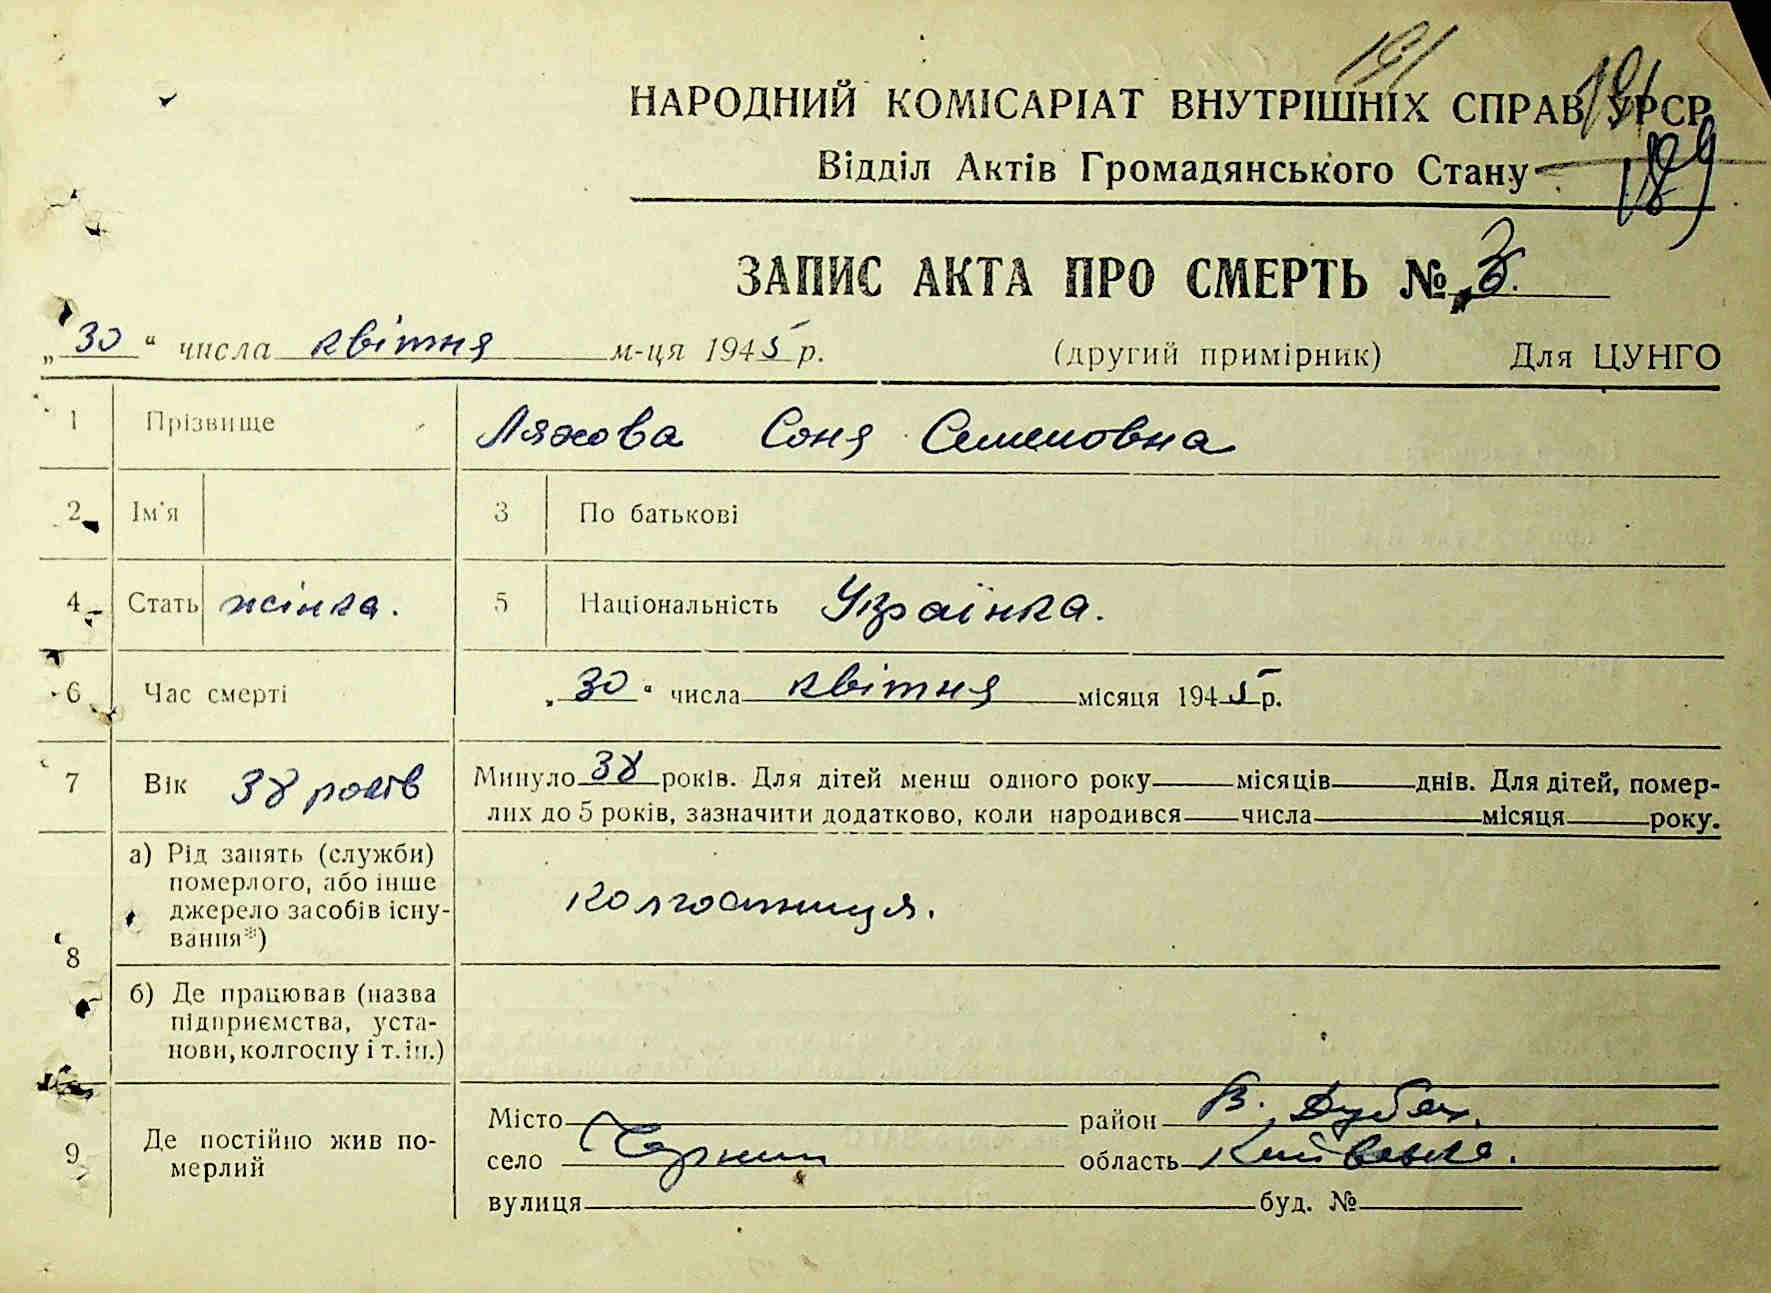 191
191
НАРОДНИЙ КОМІСАРІАТ ВНУТРІШНІХ СПРАВ УРСР
Відділ Актів Громадянського Стану
189
ЗАПИС АКТА ПРО СМЕРТЬ №
„30“ числа квітня м-ця 1945 р. (другий примірник) Для ЦУНГО
1 Прізвище Ляхова Соня Семеновна
2 Ім'я 3 По батькові
4 Стать жінка. 5 Національність Українка.
6 Час смерті „30“ числа квітня місяця 1945 р.
7 Вік 38 років Минуло 38 років. Для дітей менш одного року місяців днів. Для дітей, помер-
лих до 5 років, зазначити додатково, коли народився числа місяця року.
8 а) Рід занять (служби)
померлого, або інше
джерело засобів існу-
вання*)
колгоспниця.
б) Де працював (назва
підприємства, уста-
нови, колгоспу і т. ін.)
9 Де постійно жив по-
мерлий
Місто район В. Дубеч.
село область Київська.
вулиця буд. №